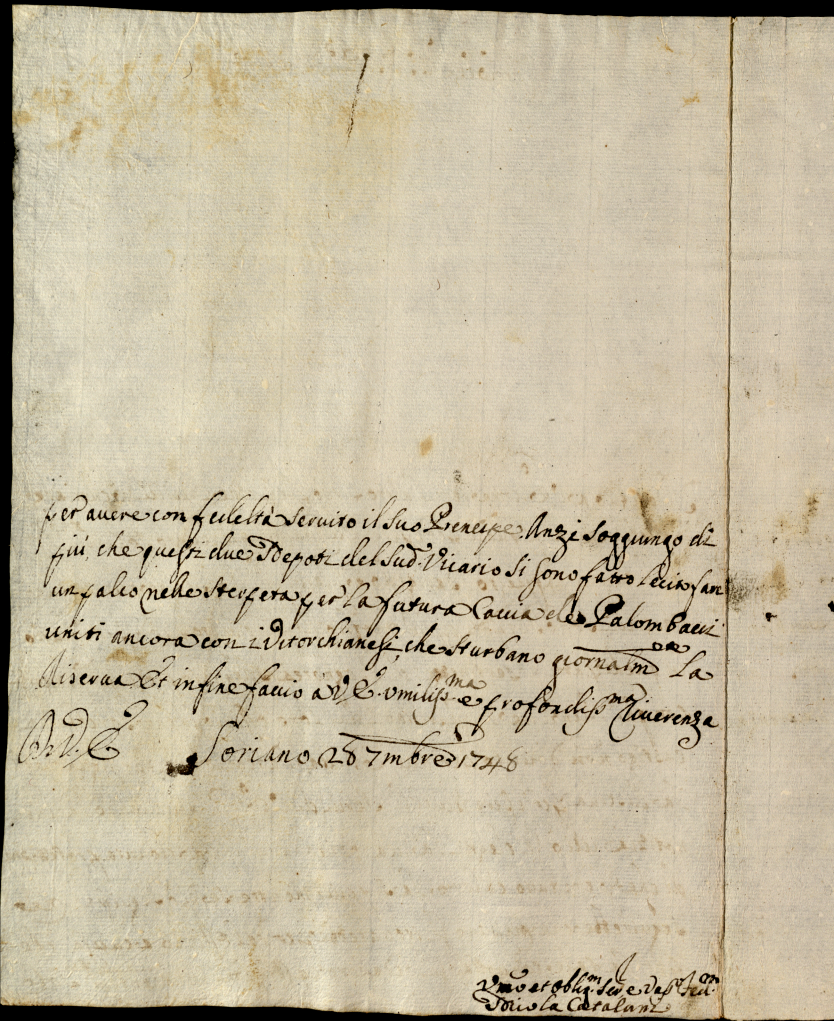 per avere con fedeltà servito il suo Prencipe Anzi soggiungo di
più, che questi due Nepoti del sud.º Vicario si sono fatto lecito fare
un palco nelle sterpeta per la futura Caccia de Palombacci
uniti ancora con i Vitorchianesi, che sturbano giornalmte la
Riserva Et in fine faccio à V. E. umilissma e profondissma Riverenza
D. V. E. Soriano 28 7mbre 1748
Vmo et oblig.m Ser.e
Nicola Catalani